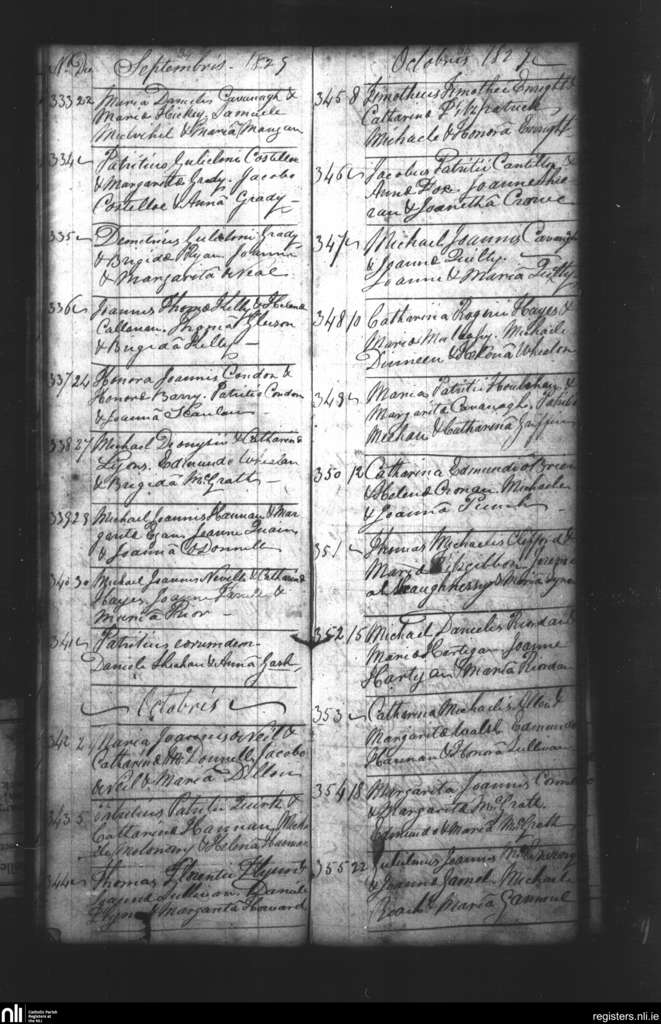 No. Die Septembris. 1829
333 22 Maria Danielis Cavanagh &
Maria Hickey. Samuele
Mulvihil & Mariâ Mangan
334 Patritius Gulielmi Costelloe
& Margarettæ Grady. Jacobo
Costelloe & Annâ Grady
335 Demetrius Gulielmi Grady
& Brigidæ Ryan. Joanne
& Margaritâ Neal
336 Joannis Thomæ Kelly & Helenæ
Callanan. Thomâ Gleeson
& Brigidâ Kelly
337 24 Honora Joannis Condon &
Honoræ Barry. Patritio Condon
& Joannâ Scanlan
338 27 Michael Dionysii & Catharinæ
Lyons. Edmundo Whelan
& Brigidâ McGrath
339 28 Michael Joannis Hannan & Mar
garitæ Egan. Joanne Quain
& Joannâ O'Donnell
340 30 Michael Joannis Neville & Catharinæ
Hayes. Joanne &
Mariâ Prior
341 Patritius eorumdem.
Daniele Sheehan & Annâ Gash
Octobris
342 2 Maria Joannis O'Neil &
Catharinæ McDonnell. Jacobo
O'Neil & Mariâ Dillon
343 5 Patritius Patritii Quirk &
Catharinæ Hannan. Micha
ele Molonony & Helenâ Hannan
344 Thomas Florentii Flynn &
Joannæ Sullivan. Daniele
Flynn & Margaritâ Howard
Octobris 1829
345 8 Timotheus Timothei Enright &
Catharinæ Fitzpatrick
Michaele & Honorâ Enright
346 Jacobus Patritii Cantillon &
Annæ Fox. Joanne Shee
ran & Joannethâ Crowe
347 Michael Joannis Cavanagh
& Joannæ Quilly.
Joanne & Mariâ Quilly
348 10 Catharina Rogerii Hayes &
Mariæ Mulcahy. Michaele
Dinneen & Helenâ Whelan
348 Maria Patritii Houlahan &
Margaritæ Cavanagh. Patritio
Meehan & Catharinâ
350 12 Catharina Edmundi O'Brien
& Helenæ Cronan. Michaele
& Joannâ
351 Thomas Michaelis Clifford &
Mariæ Fitzgibbon. Josepho
O'Shaughnessy & Mariâ Lyne
352 15 Michael Danielis Riordan &
Mariæ Hartigan. Joanne
Hartigan & Martâ Riordan
353 Catharina Michaelis Allen &
Margaritæ Walsh. Edmundo
Hannan & Honorâ Sullivan
354 18 Margarita Joannis
& Margaritæ McGrath.
Edmundo & Mariâ McGrath
355 22 Gulielmus Joannis
& Joannæ Gamel. Michaele
Roach & Mariâ Gammel
nli Catholic Parish
Registers at
the NLI
registers.nli.ie